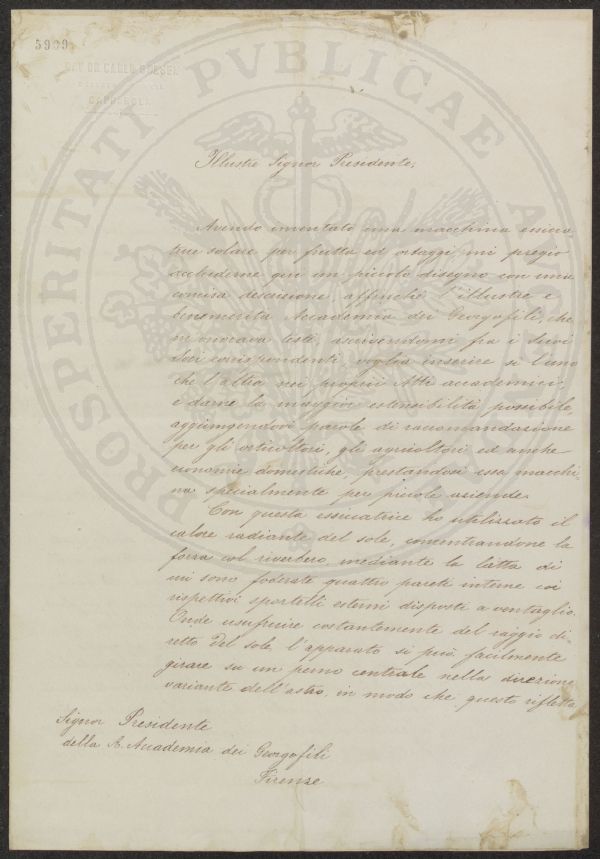 5909
CAV. DR. CARLO
CAPRAROLA
PROSPERITATI PVBLICAE AVGENDAE
Illustre Signor Presidente,
Avendo inventato una macchina essica
trice solare per frutta ed ortaggi, mi pregio
accluderne qui un piccolo disegno con una
concisa descrizione, affinché l'illustre e
benemerita Accademia dei Georgofili, che
m'onorava testè, ascrivendomi fra i suoi
Soci corrispondenti voglia inserire sì l'uno
che l'altra nei proprii Atti accademici,
e darne la maggior estensibilità possibile,
aggiungendovi parole di raccomandazione
per gli orticoltori, gli agricoltori ed anche
economie domestiche, prestandosi essa macchi-
na specialmente per piccole aziende.
Con questa essicatrice ho utilizzato il
calore radiante del sole, concentrandone la
forza col riverbero, mediante la latta di
cui sono foderate quattro pareti interne coi
rispettivi sportelli esterni disposti a ventaglio.
Onde usufruire costantemente del raggio di-
retto del sole, l'apparato si può facilmente
girare su un perno centrale nella direzione
variante dell'astro, in modo che questo rifletta
Signor Presidente
della R. Accademia dei Georgofili
Firenze